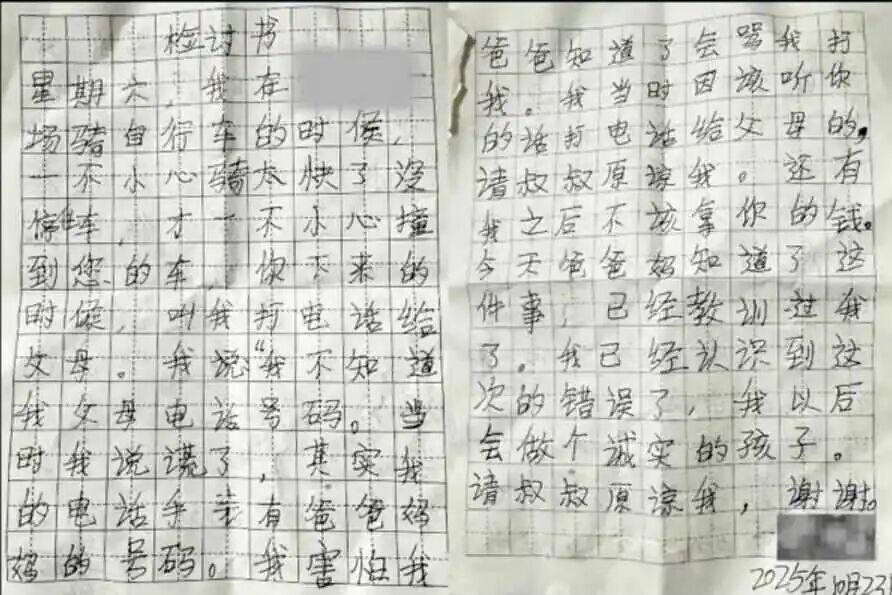 检讨书
星期六，我在
场骑自行车的时候，
一不小心骑太快了没
停住车，才一不小心撞
到您的车，你下来的
时候，叫我打电话给
父母。我说“我不知道
我父母电话号码。当
时我说谎了，其实我
的电话手表有爸爸妈
妈的号码。我害怕我
爸爸知道了会骂我打
我。我当时因该听你
的话打电话给父母的，
请叔叔原谅我。还有
我之后不该拿你的钱。
今天爸爸妈知道了这
件事，已经教训过我
了。我已经认识到这
次的错误了，我以后
会做个诚实的孩子。
请叔叔原谅我，谢谢。
2025年10月23日